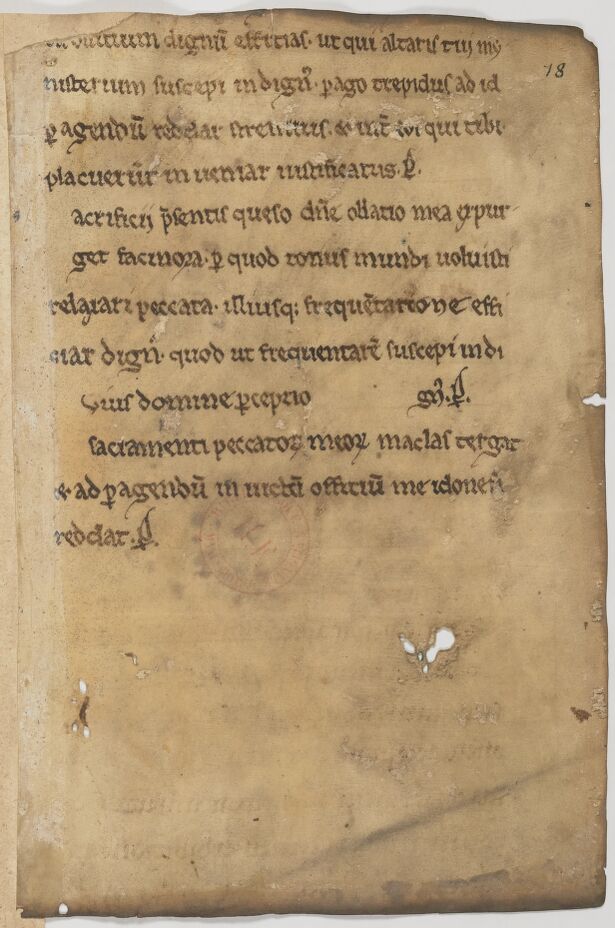 seruitium dignū efficias· ut qui altaris tui my
nisterium suscepi indignꝰ· ꝑago trepidus ad id
ꝑagendū reddar strenuus· & int̄ eos qui tibi
placuerūt inueniar iustificatus· ꝑ·
acrificii p̄sentis queso dn̄e ollatio mea expur
get facinora· ꝑ quod totius mundi uoluisti
relaxari peccata· illiusq; frequētatione effi
ciar dignꝰ· quod ut frequentarē suscepi indi
uius domine ꝑceptio gnꝰ· ꝑ·
sacramenti peccatoꝝ meoꝝ maclas tergat
& ad ꝑagendū in iuctū offitiū me idoneū
reddat· ꝑ·
18